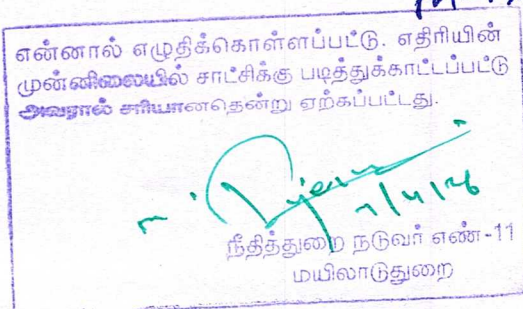 என்னால் எழுதிக்கொள்ளப்பட்டு. எதிரியின்
முன்னிலையில் சாட்சிக்கு படித்துக்காட்டப்பட்டு
அவரால் சரியானதென்று ஏற்கப்பட்டது.
நீதித்துறை நடுவர் எண்-11
மயிலாடுதுறை